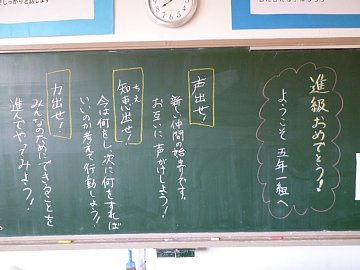 進級おめでとう!
ようこそ 五年一組へ
声出せ!
新い仲間の始まりです。
お互いに声がけしよう!
知恵出せ!
ちえ
今は何をし、次に何をすれば
いいのか考えて行動しよう!
力出せ!
みんなのためにできることを
進んでやってみよう!